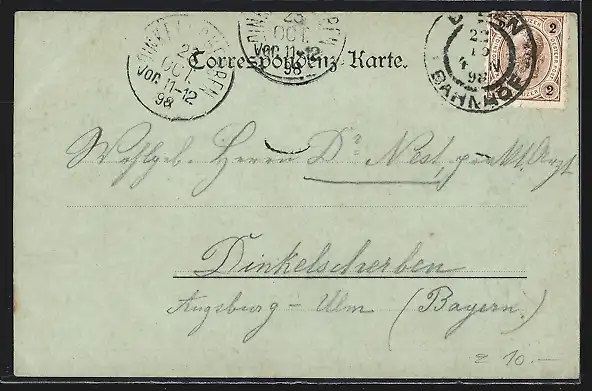 DINKELSCHERBEN
23
OCT.
Vor. 11-12
98
DINKELSCHERBEN
23
OCT.
Vor. 11-12
98
22
98
BAHNHOF
2
2
Correspondenz-Karte.
Wohlgeb. Herrn Dr Nest, prakt. Arzt
Dinkelscherben
Augsburg - Ulm (Bayern)
10.-